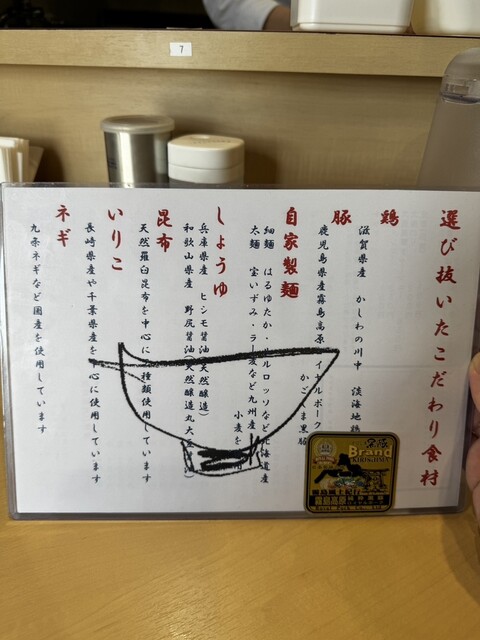 7
選び抜いたこだわり食材
鶏
滋賀県産 かしわの川中 淡海地鶏
豚
鹿児島県産霧島高原 イヤルポーク
かごしま黒豚
自家製麺
細麺 はるゆたか・ ルルロッソなど 海道産
太麺 宝いずみ・ラー麦など九州産
小麦を
しょうゆ
兵庫県産 ヒシモ醤油(天然醸造)
和歌山県産 野尻醤油(天然醸造丸大
昆布
天然羅臼昆布を中心に 種類使用しています
いりこ
長崎県産や千葉県産を中心に使用しています
ネギ
九条ネギなど国産を使用しています
黒豚
Brand
KIRISHIMA
霧島高原